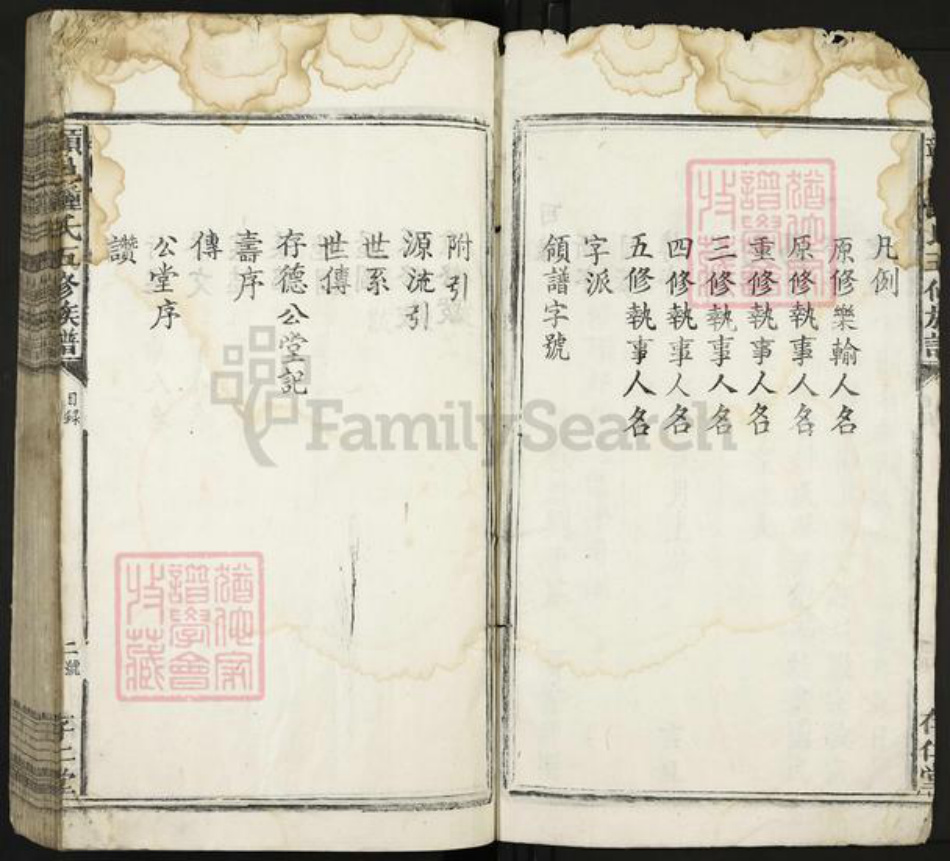 凡例
原修樂翰人名
原修執事人名
重修執事人名
三修執事人名
四修執事人名
五修執事人名
字派
領譜字號
附引
源流引
世系
世傳
存德公堂記
壽序
傳
公堂序
讚
氏五修族譜
目録
二號
存仁堂
FamilySearch
猶他家
譜學會
收藏